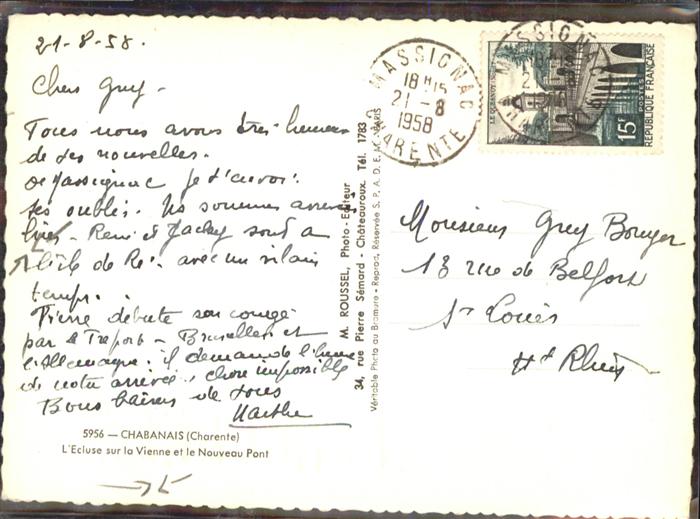 21-8-58.
Cher Guy.
Tous nous avons très heureux
de ses nouvelles.
De Massignac je t'envoi.
ses oublis. Ns sommes arrivés
hier. René et Jacky sont a
l'île de Ré. avec un vilain
temps.
Pierre débute son congé
par le Tréport - Bruxelles et
l'Allemagne. il demande l'heure
de notre arrivée, chose impossible
Bons baisers de tous
Marthe
5956 — CHABANAIS (Charente)
L'Ecluse sur la Vienne et le Nouveau Pont
M. ROUSSEL, Photo-Editeur
34, rue Pierre Sémard - Châteauroux. Tél. 1783
Véritable Photo au Bromure - Reprod. Réservée S. P. A. D. E. M. PARIS
MASSIGNAC
18 H 15
21 - 8
1958
CHARENTE
LE QUESNOY
15F
POSTES
REPUBLIQUE FRANÇAISE
Monsieur Guy Bouyer
13 rue de Belfort
St Louis
Ht Rhin